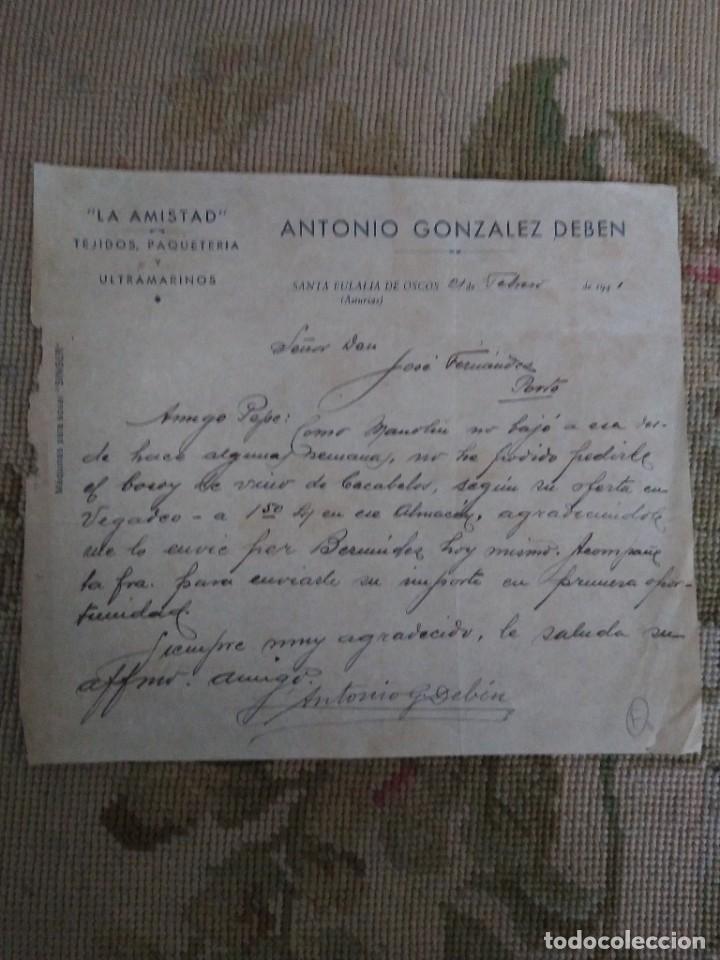 "LA AMISTAD"
TEJIDOS, PAQUETERIA
Y
ULTRAMARINOS
ANTONIO GONZALEZ DEBEN
SANTA EULALIA DE OSCOS 21 de Febrero de 1941
(Asturias)
Máquinas para coser "SINGER"
Señor Don
José Fernández
Porto
Amigo Pepe: Como Manolín no bajó a esa des-
de hace algunas semanas, no he podido pedirle
el bocoy de vino de Cacabelos, según su oferta en
Vegadeo - a 1'50 en ese Almacén, agradeciéndole
me lo envíe por Bermúdez hoy mismo. Acompañe
la fra. para enviarle su importe en primera opor-
tunidad.
Siempre muy agradecido, le saluda su
affmo. amigo.
Antonio G Debén
todocoleccion
todocoleccion.net